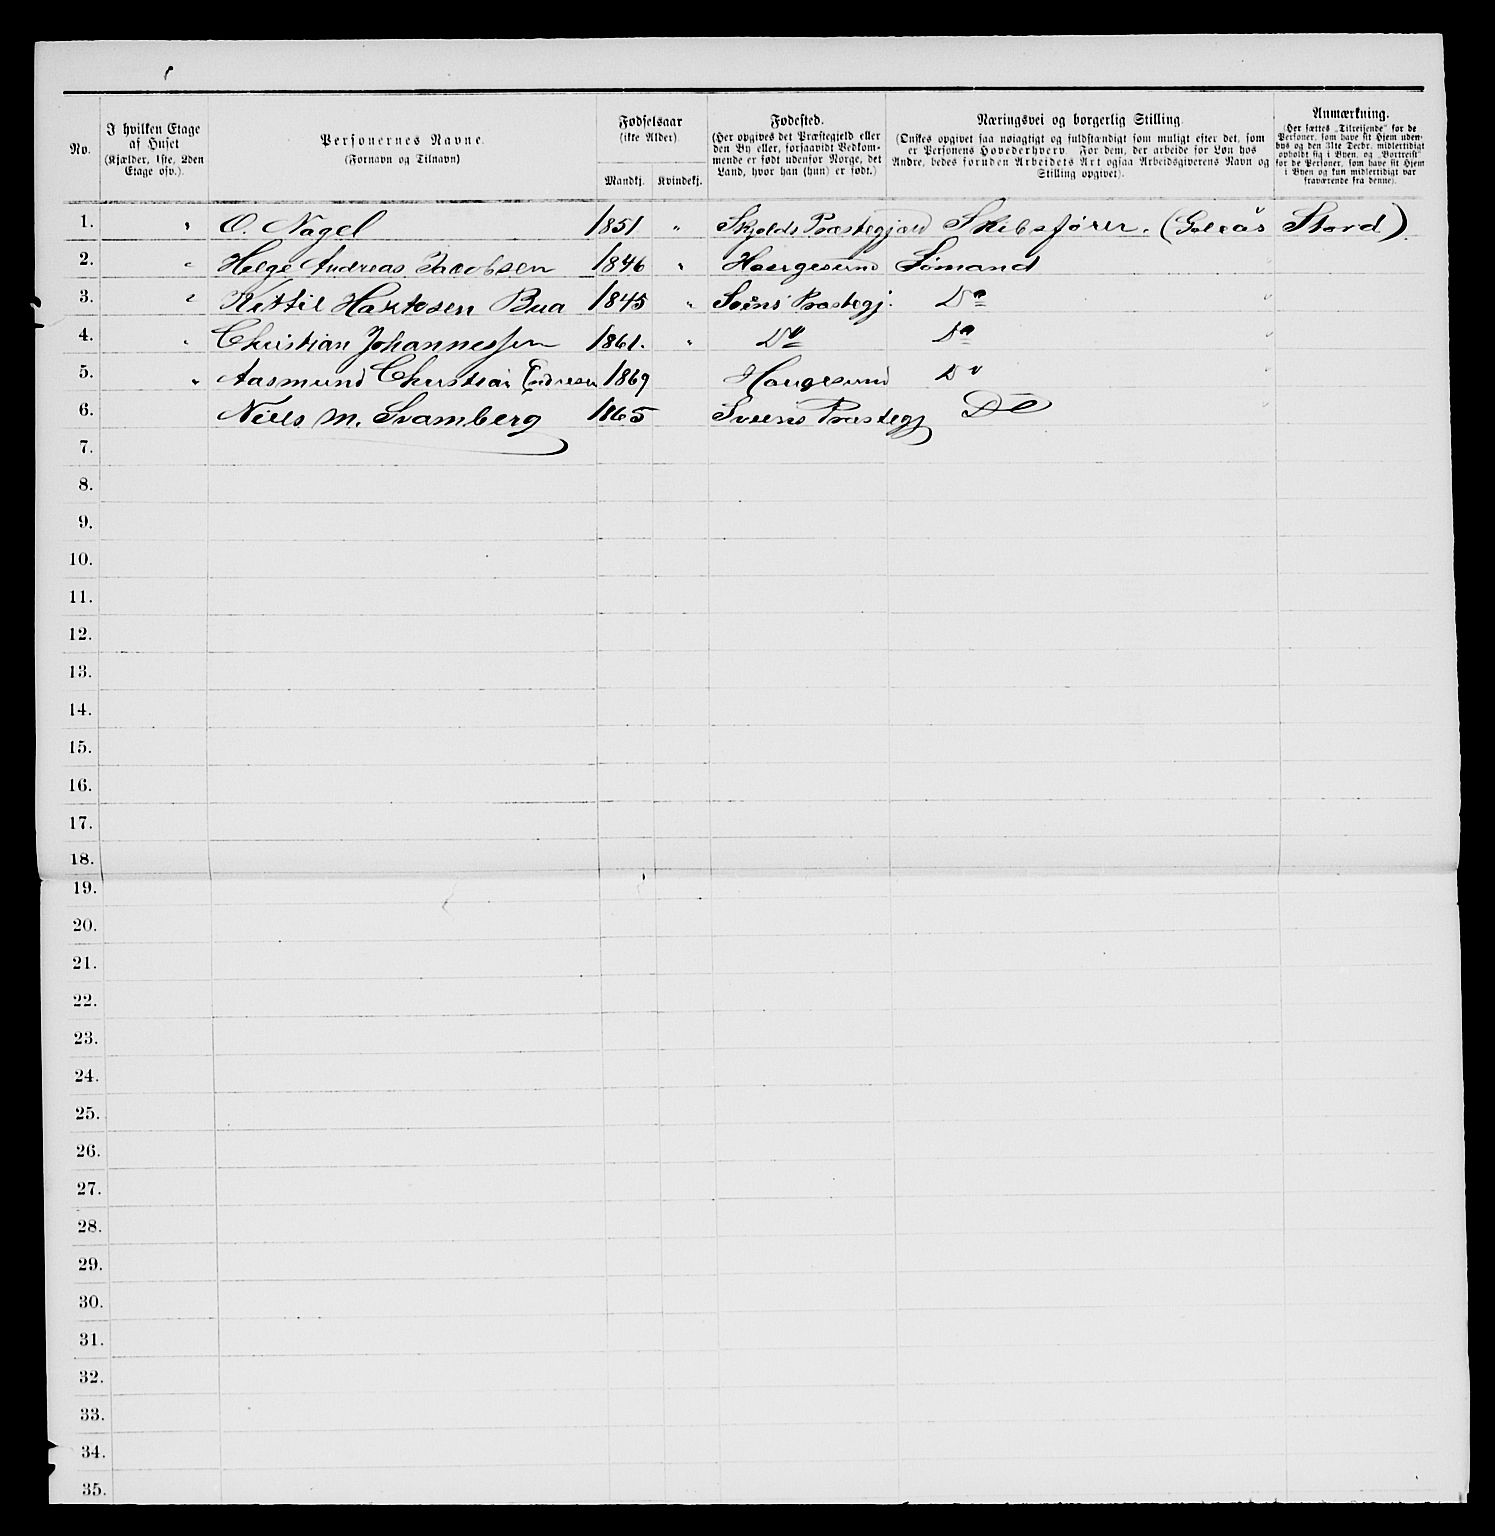 No.
I hvilken Etage af Huset
(Kjælder, 1ste, 2den Etage osv.).
Personernes Navne.
(Fornavn og Tilnavn)
Fødselsaar
(ikke Alder)
Mandkj. Kvindekj.
Fødested.
(Her opgives det Præstegjeld eller
den By eller, forsaavidt Vedkom-
mende er født udenfor Norge, det
Land, hvor han (hun) er født.)
Næringsvei og borgerlig Stilling.
(Ønskes opgivet saa nøiagtigt og fuldstændigt som muligt efter det, som
er Personens Hovederhverv. For dem, der arbeide for Løn hos
Andre, bedes foruden Arbeidets Art ogsaa Arbeidsgiverens Navn og
Stilling opgivet).
Anmærkning.
(Her sættes „Tilreisende“ for de
Personer, som have sit Hjem uden-
bys og den 31te Decbr. midlertidigt
opholdt sig i Byen, og „Bortreist“
for de Personer, som have sit Hjem
i Byen og kun midlertidigt var
fraværende fra denne).
1. " O. Nagel 1851 " Skjolds Præstegjæld Skibsfører. ( Stord)
2. " Helge Andreas Jacobsen 1846 " Haugesund Sømand "
3. " Kittil Bua 1845 " Sveens Præstegj. Do "
4. " Christian Johannessen 1861. " Do Do "
5. " Aasmund Christian Endresen 1869 Haugesund Do "
6. Niels M. Svamberg 1865 Sveens Præstegj Do "
7.
8.
9.
10.
11.
12.
13.
14.
15.
16.
17.
18.
19.
20.
21.
22.
23.
24.
25.
26.
27.
28.
29.
30.
31.
32.
33.
34.
35.